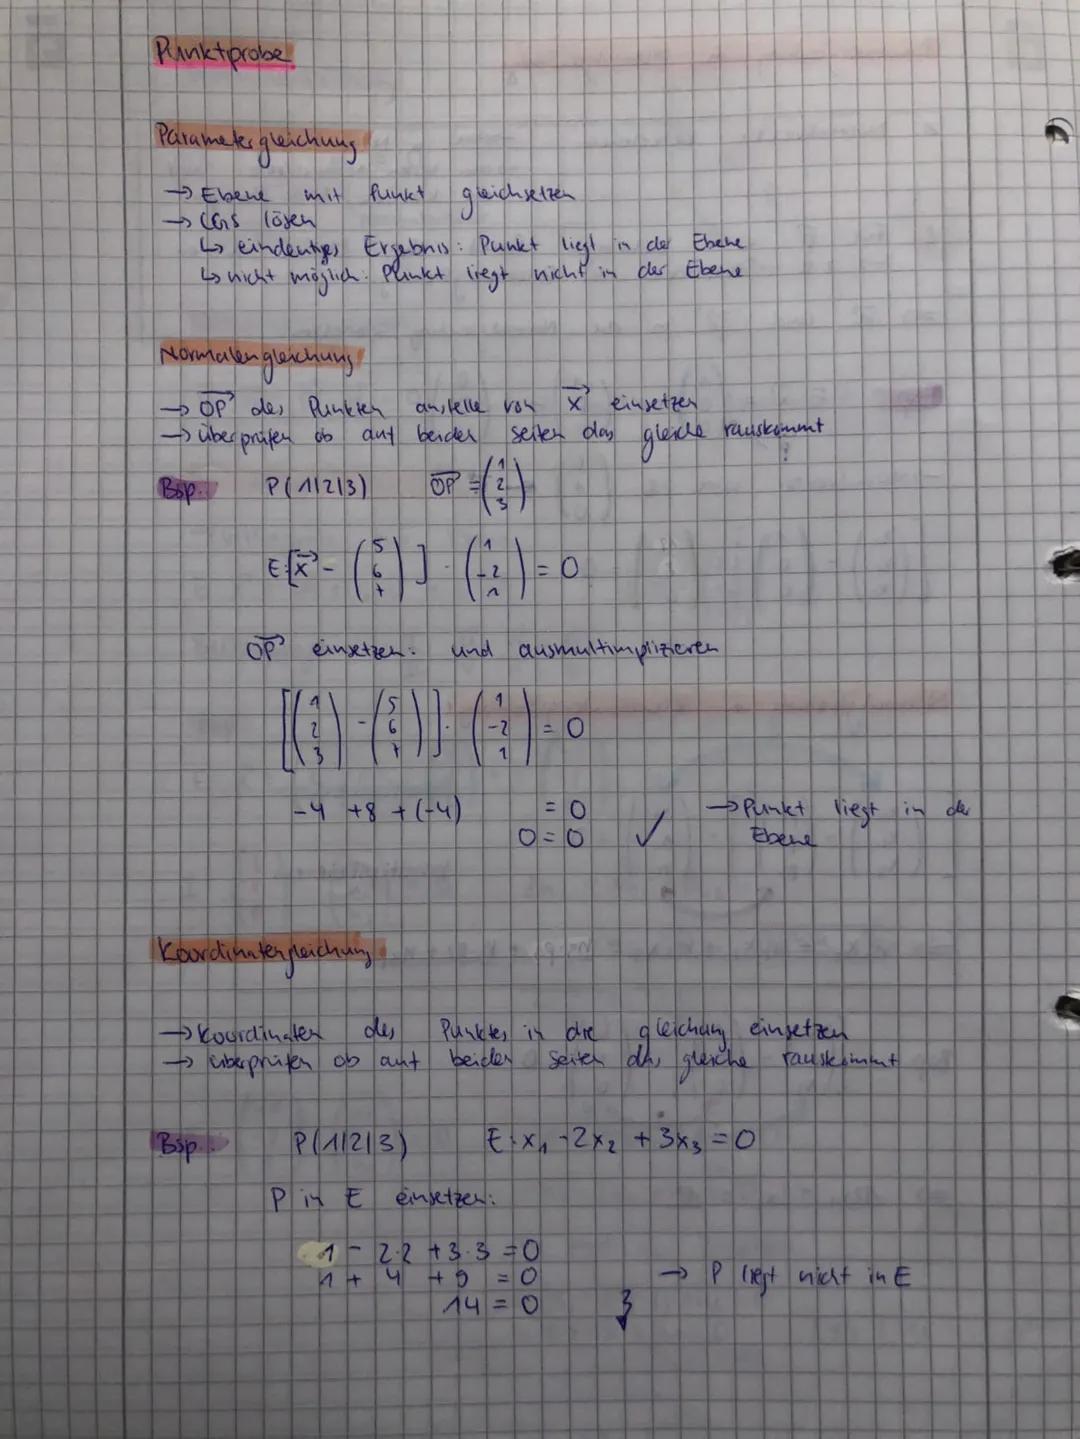 Punktprobe
Parametergleichung
→ Ebene mit Punkt gleichsetzen
→ LGS lösen
↳ eindeutiges Ergebnis: Punkt liegt in der Ebene
↳ nicht möglich: Punkt liegt nicht in der Ebene
Normalengleichung
→ OP⃗ des Punktes anstelle von x⃗ einsetzen
→ überprüfen ob auf beiden Seiten das gleiche rauskommt
Bsp. P(1|2|3) OP⃗ = (1 2 3)
E: [x⃗ - (5 6 7)] · (1 -2 1) = 0
OP⃗ einsetzen: und ausmultimplizieren
[(1 2 3) - (5 6 7)] · (1 -2 1) = 0
-4 +8 + (-4) = 0 → Punkt liegt in der
0 = 0 ✓ Ebene
Koordinatengleichung
→ Koordinaten des Punktes in die gleichung einsetzen
→ überprüfen ob auf beiden Seiten das gleiche rauskommt
Bsp.: P(1|2|3) E: x₁ - 2x₂ + 3x₃ = 0
P in E einsetzen:
1 - 2·2 + 3·3 = 0
1 + 4 + 9 = 0 → P liegt nicht in E
14 = 0